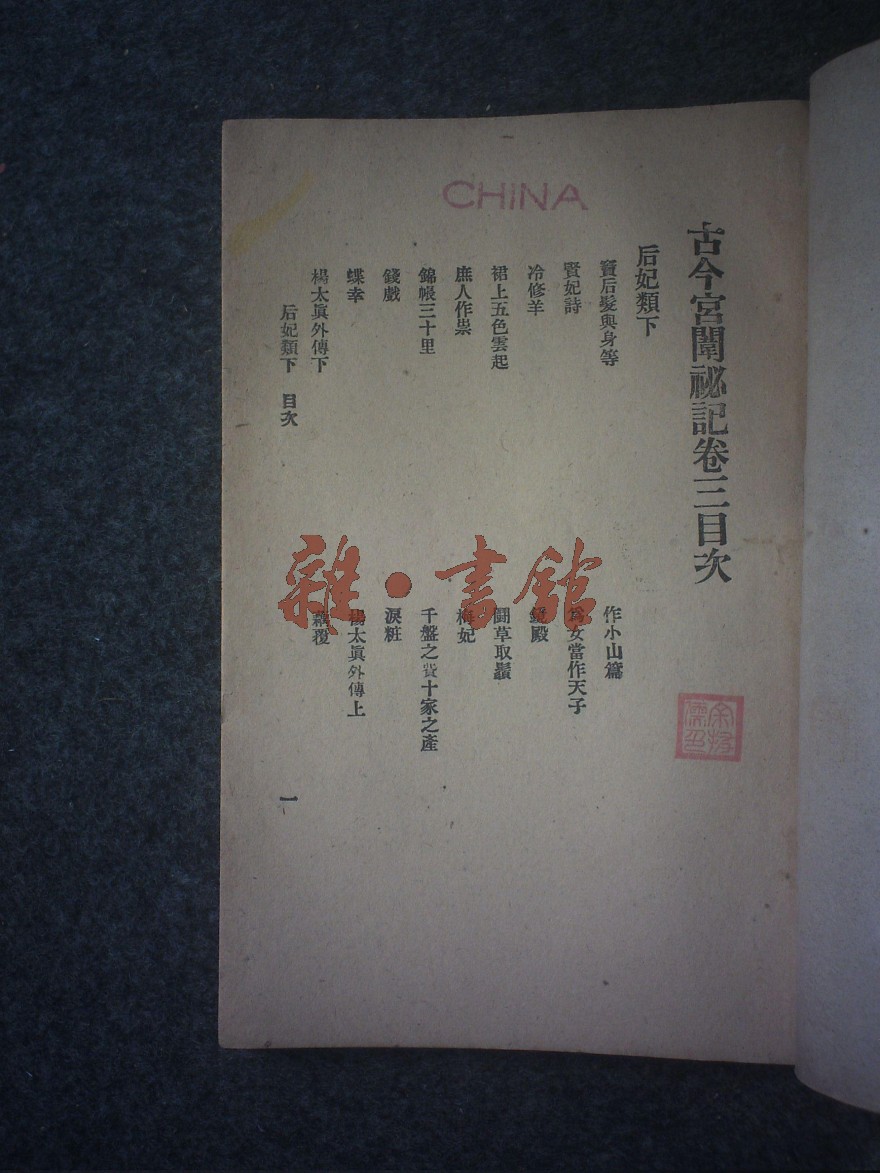 CHINA
古今宮闈祕記卷三目次
后妃類下
竇后髮與身等
作小山篇
賢妃詩
爲女當作天子
冷修羊
鏡殿
裙上五色雲起
鬭草取鬚
庶人作祟
梅妃
錦帳三十里
千盤之費十家之產
錢戲
淚粧
蝶幸
楊太眞外傳上
楊太眞外傳下
后妃類下 目次
一
雜·書館